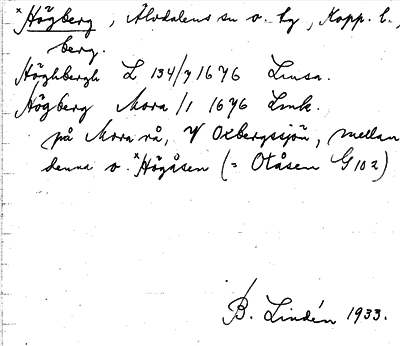 *Högberg, Älvdalens sn o. tg, Kopp. l.,
berg.
Höghbergh L 134/7 1676 Linsa.
Högberg Mora /1 1676 Link.
på Mora rå, V Oxbergssjön, mellan
denna o. *Högåsen (= Otåsen G 102)
B. Lindén 1933.